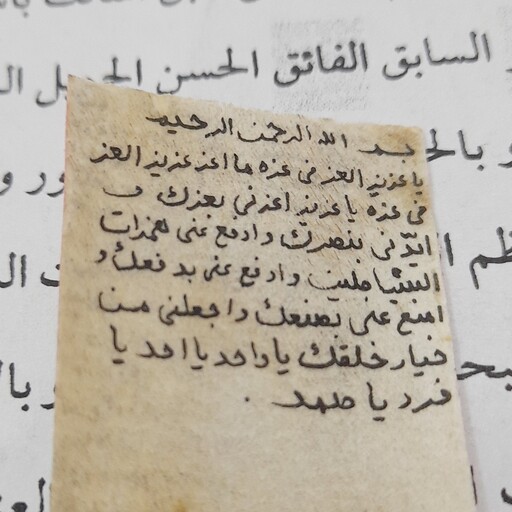 السابق الفائق الحسن الجميل
بسم الله الرحمن الرحيم
يا عزيز العز في عزه ما اعز عزيز العز
في عزه يا عزيز اعزني بعزك و
ايدني بنصرك و ادفع عني همزات
الشياطين و ادفع عني بدفعك و
امنع عني بصنعك و اجعلني من
خيار خلقك يا واحد يا احد يا
فرد يا صمد .